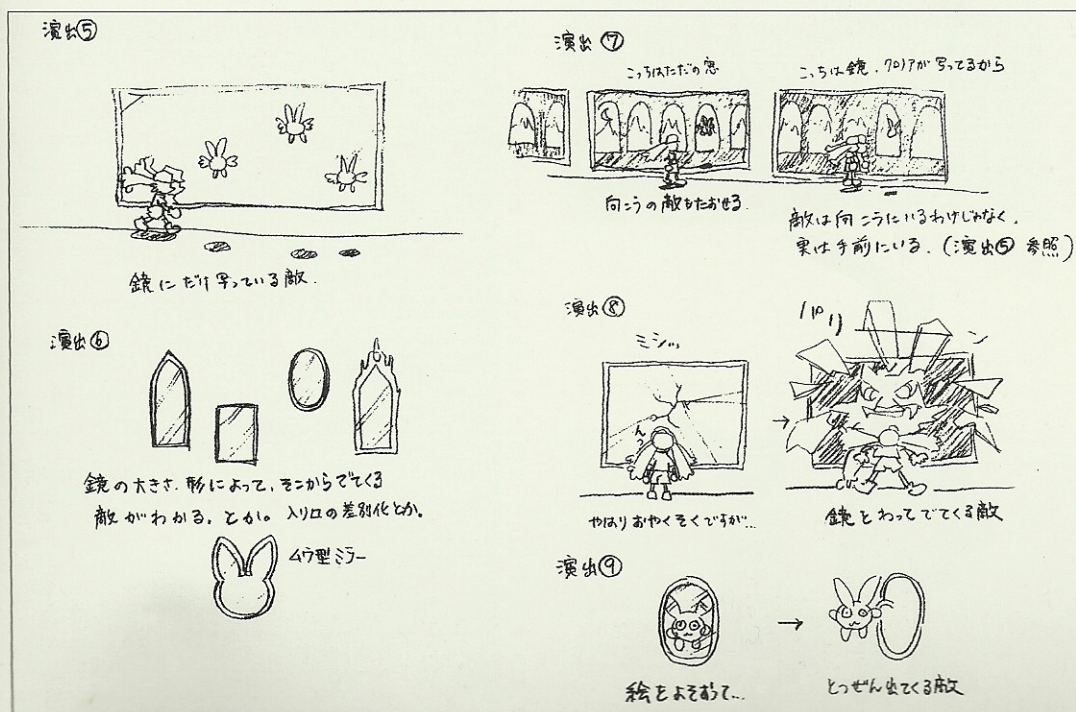 演出⑤
鏡にだけ写っている敵.
演出⑥
鏡の大きさ、形によって、そこからでてくる
敵がわかる。とか。入り口の差別化とか。
ムウ型ミラー
演出⑦
こっちはただの窓
こっちは鏡.クロノアが写ってるから
向こうの敵もたおせる.
敵は向こうにいるわけじゃなく.
実は手前にいる.(演出⑤参照)
演出⑧
ミシッ
んっ
やはりおやくそくですが…
バリーン
鏡をわってでてくる敵
演出⑨
絵をよそおって…
とつぜん出てくる敵